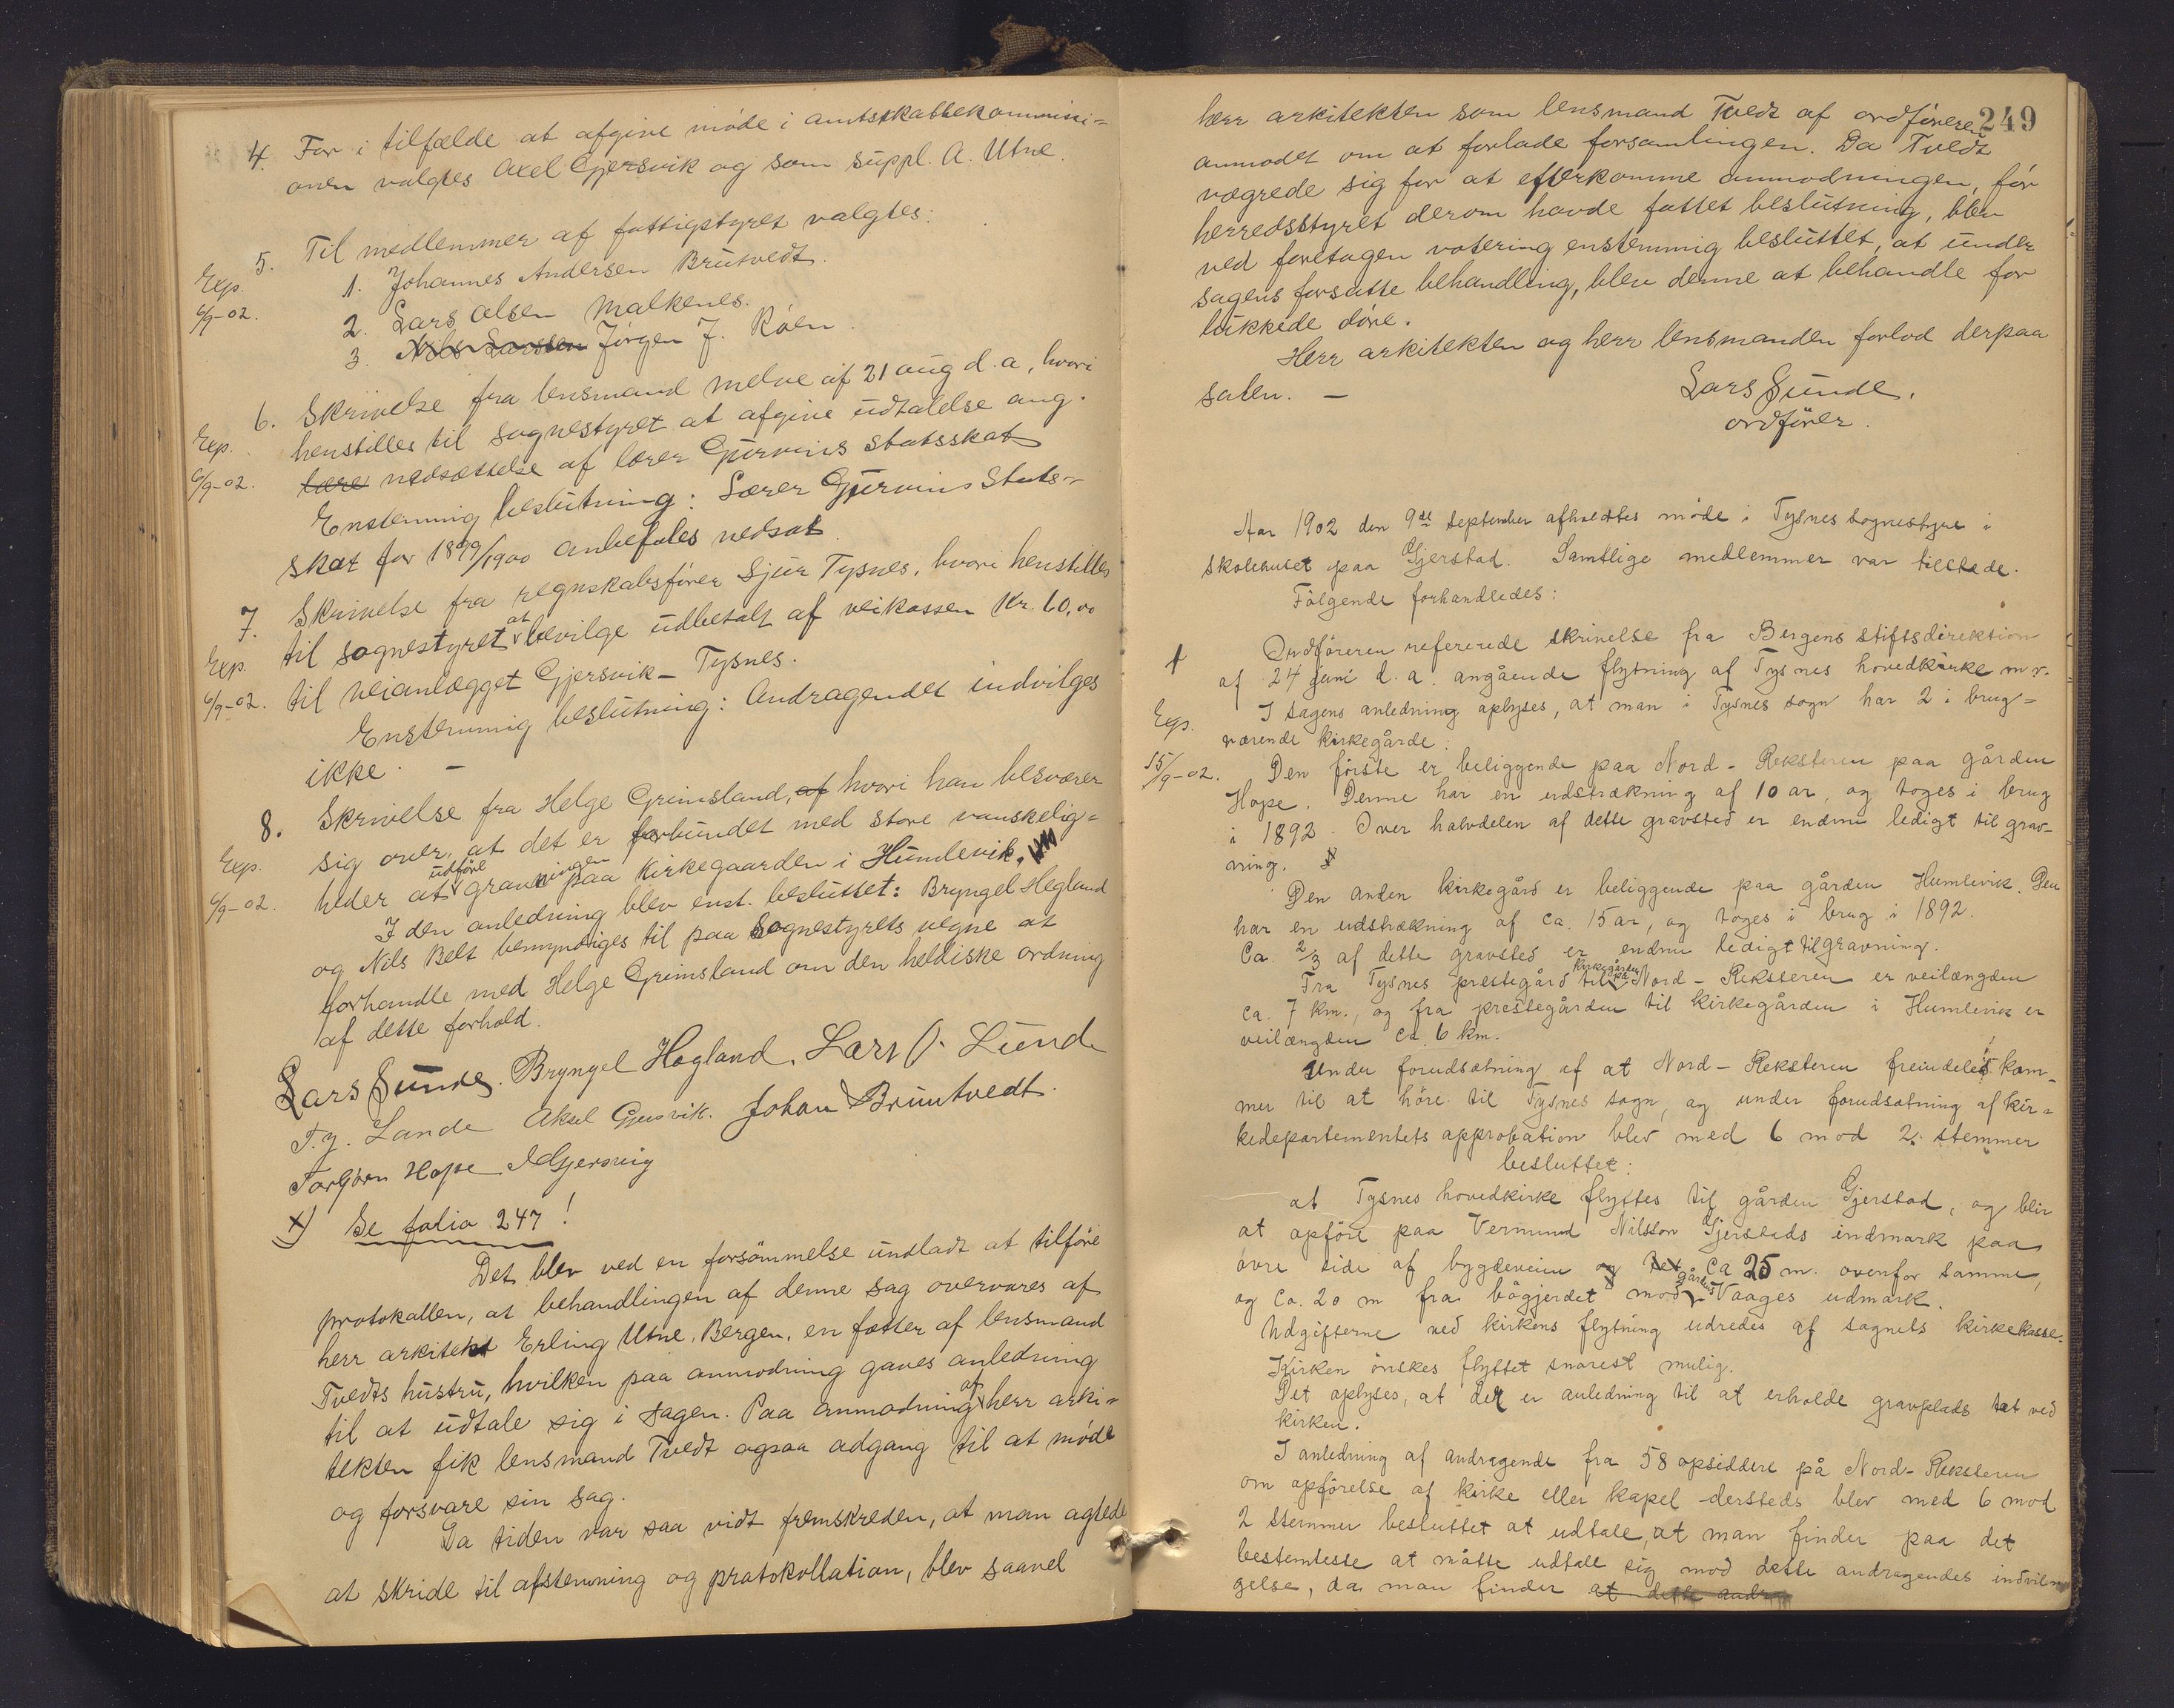 4. For i tilfælde at afgive møde i amtsskattekommissi=
onen valgtes Axel Gjersvik og som suppl. A. Utne.
5. Til medlemmer af fattigstyret valgtes:
Exp.
6/9-02.
1. Johannes Andersen Brutvedt.
2. Lars Olsen Malkenes.
3. Nils Larssen Jørgen J. Röen.
6. Skrivelse fra lensmand Melve af 21 aug d.a., hvori
Exp.
6/9-02.
henstilles til sognestyret at afgive udtalelse ang.
lære nedsættelse af lærer Gjervins statsskat
Enstemmig beslutning: Lærer Gjervins Stats=
skat for 1899/1900 anbefales nedsat
7. Skrivelse fra regnskabsfører Sjur Tysnes, hvori henstilles
Exp.
6/9-02.
til sognestyret at bevilge udbetalt af veikassen Kr. 60,00
til veianlægget Gjersvik - Tysnes.
Enstemmig beslutning: Andragendet indvilges
ikke. -
8. Skrivelse fra Helge Grimsland, af hvori han besværer
Exp.
6/9-02.
sig over, at det er forbundet med store vanskelig=
heder at udføre gravningen paa Kirkegaarden i Humlevik.
I den anledning blev enst. besluttet: Bryngel Hegland
og Nils Belt bemyndiges til paa Sognestyrets vegne at
forhandle med Helge Grimsland om den heldiske ordning
af dette forhold.
Lars Sunde. Bryngel Hogland. Lars O. Lunde
T. J. Lande Aksel Gjersvik. Johan Bruntvedt.
Torbjørn Hope J Gjersvig
x) Se folio 247!
Det blev ved en forsömmelse undladt at tilföre
protokollen, at behandlingen af denne sag overvares af
herr arkitekt Erling Utne, Bergen, en fætter af lensmand
Tvedts hustru, hvilken paa anmodning gaves anledning
til at udtale sig i sagen. Paa anmodning af herr arki=
tekten fik lensmand Tvedt ogsaa adgang til at møde
og forsvare sin sag.
Da tiden var saa vidt fremskreden, at man agtede
at skride til afstemning og protokollation, blev saavel
249
herr arkitekten som lensmand Tvedt af ordföreren
anmodet om at forlade forsamlingen. Da Tvedt
vægrede sig for at efterkomme anmodningen, för
herredsstyret derom havde fattet beslutning, blev
ved foretagen votering enstemmig besluttet, at under
sagens forsatte behandling, blev denne at behandle for
lukkede döre.
Herr arkitekten og herr lensmanden forlod derpaa
salen. -
Lars Sunde.
ordfører.
Aar 1902 den 9de september afholdtes möde i Tysnes sognestyre i
skolehuset paa Gjerstad. Samtlige medlemmer var tilstede.
Fölgende forhandledes:
1 Ordföreren refererede skrivelse fra Bergens stiftsdirektion
af 24 juni d.a. angående flytning af Tysnes hovedkirke m.v.
Exp.
15/9-02.
I sagens anledning oplyses, at man i Tysnes sogn har 2 i brug=
værende kirkegårde:
Den förste er beliggende paa Nord-Reksteren paa gården
Hope. Denne har en udstrækning af 10 ar, og toges i brug
i 1892. Over halvdelen af dette gravsted er endnu ledigt til grav-
ning.
Den anden kirkegård er beliggende paa gården Humlevik. Den
har en udstrækning af ca. 15 ar, og toges i brug i 1892.
Ca. 2/3 af dette gravsted er endnu ledigt til gravning.
Fra Tysnes prestegård til kirkegården på Nord-Reksteren er veilængden
ca. 7 km., og fra prestegården til kirkegården i Humlevik er
veilængden ca. 6 km.
Under forudsætning af at Nord-Reksteren fremdeles kom-
mer til at höre til Tysnes sogn, og under forudsætning af kir=
kedepartementets approbation blev med 6 mod 2 stemmer
besluttet:
at Tysnes hovedkirke flyttes til gården Gjerstad, og blir
at opföre paa Vermund Nilsson Gjerstads indmark paa
övre side af bygdeveien og ca 25 m. ovenfor samme,
og ca. 20 m fra bögjerdet mod gården Vaages udmark.
Udgifterne ved kirkens flytning udredes af sognets kirkekasse.
Kirken önskes flyttet snarest mulig.
Det oplyses, at der er anledning til at erholde gravplads tæt ved
kirken.
I anledning af andragende fra 58 opsiddere på Nord-Reksteren
om opförelse af kirke eller kapel dersteds blev med 6 mod
2 stemmer besluttet at udtale, at man finder paa det
bestemteste at måtte udtale sig mod dette andragendes indvil=
gelse, da man finder at dette andr